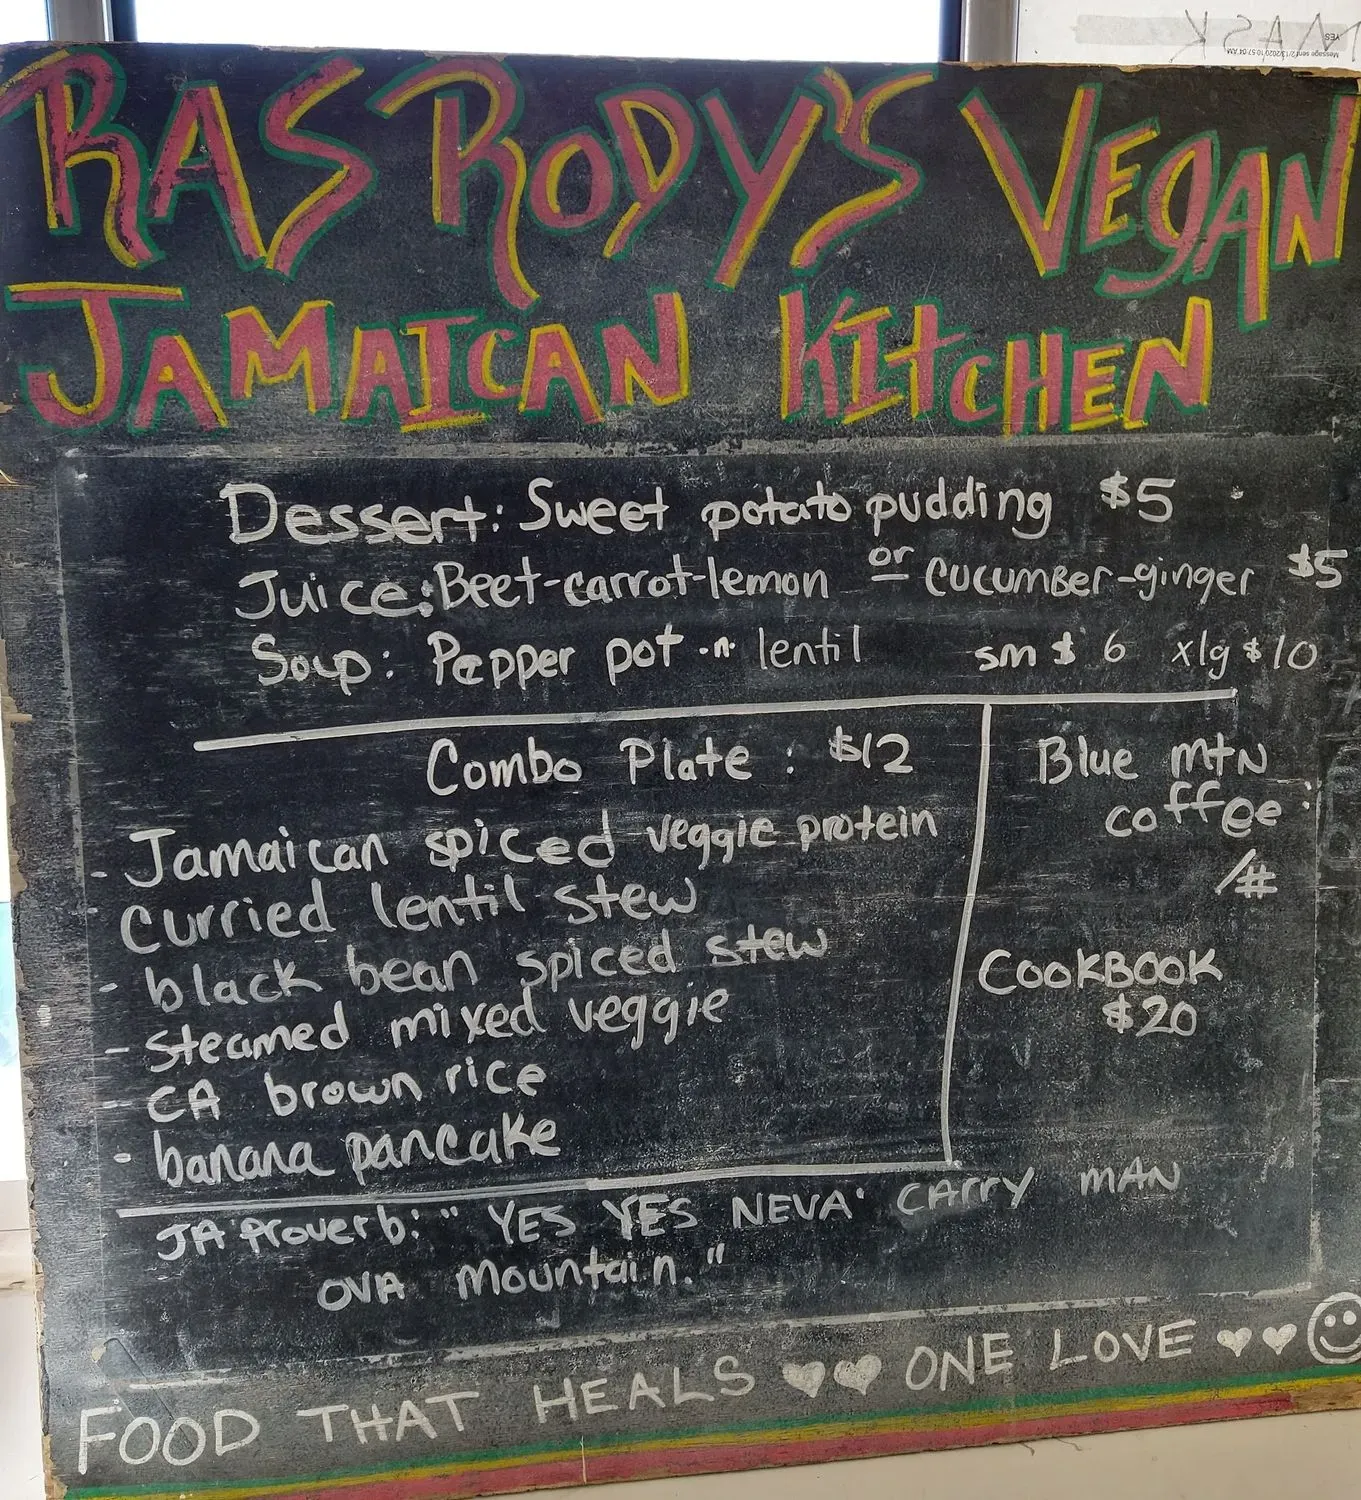 RAS RODY'S VEGAN
JAMAICAN KITCHEN
Dessert: Sweet potato pudding $5
Juice: Beet-carrot-lemon or cucumber-ginger $5
Soup: Pepper pot -n- lentil sm $ 6 xlg $10
Combo Plate : $12
- Jamaican spiced veggie protein
- curried lentil stew
- black bean spiced stew
- steamed mixed veggie
- CA brown rice
- banana pancake
Blue mtn
coffee :
/#
COOKBOOK
$20
JA Proverb: " YES YES NEVA' CARRY MAN
OVA mountain."
FOOD THAT HEALS ONE LOVE
MASK
YES
Message sent 2/13/2020 10:57:04 AM